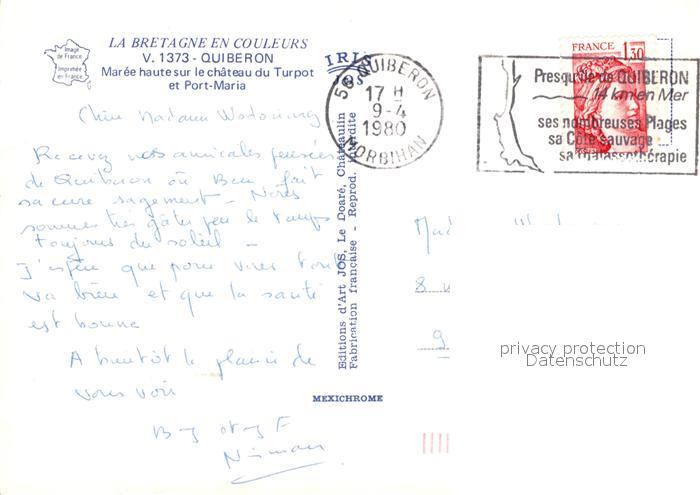 LA BRETAGNE EN COULEURS
V. 1373 - QUIBERON
Marée haute sur le château du Turpot
et Port-Maria
Image
de France
Imprimée
en France
IRIS
Editions d'Art JOS, Le Doaré, Châteaulin
Fabrication française - Reprod. interdite
MEXICHROME
56 QUIBERON
17 H
9-4
1980
MORBIHAN
FRANCE 1,30
Presqu'île de QUIBERON
14 km en Mer
ses nombreuses Plages
sa Côte sauvage
sa thalassothérapie
Chère Madame
Recevez nos amicales pensées
de Quiberon où Ben fait
sa cure sagement - Nous
sommes très gâtés par le temps
toujours du soleil -
J'espère que pour vous tout
va bien et que la santé
est bonne
A bientôt le plaisir de
vous voir
Mad
8
9
privacy protection
Datenschutz